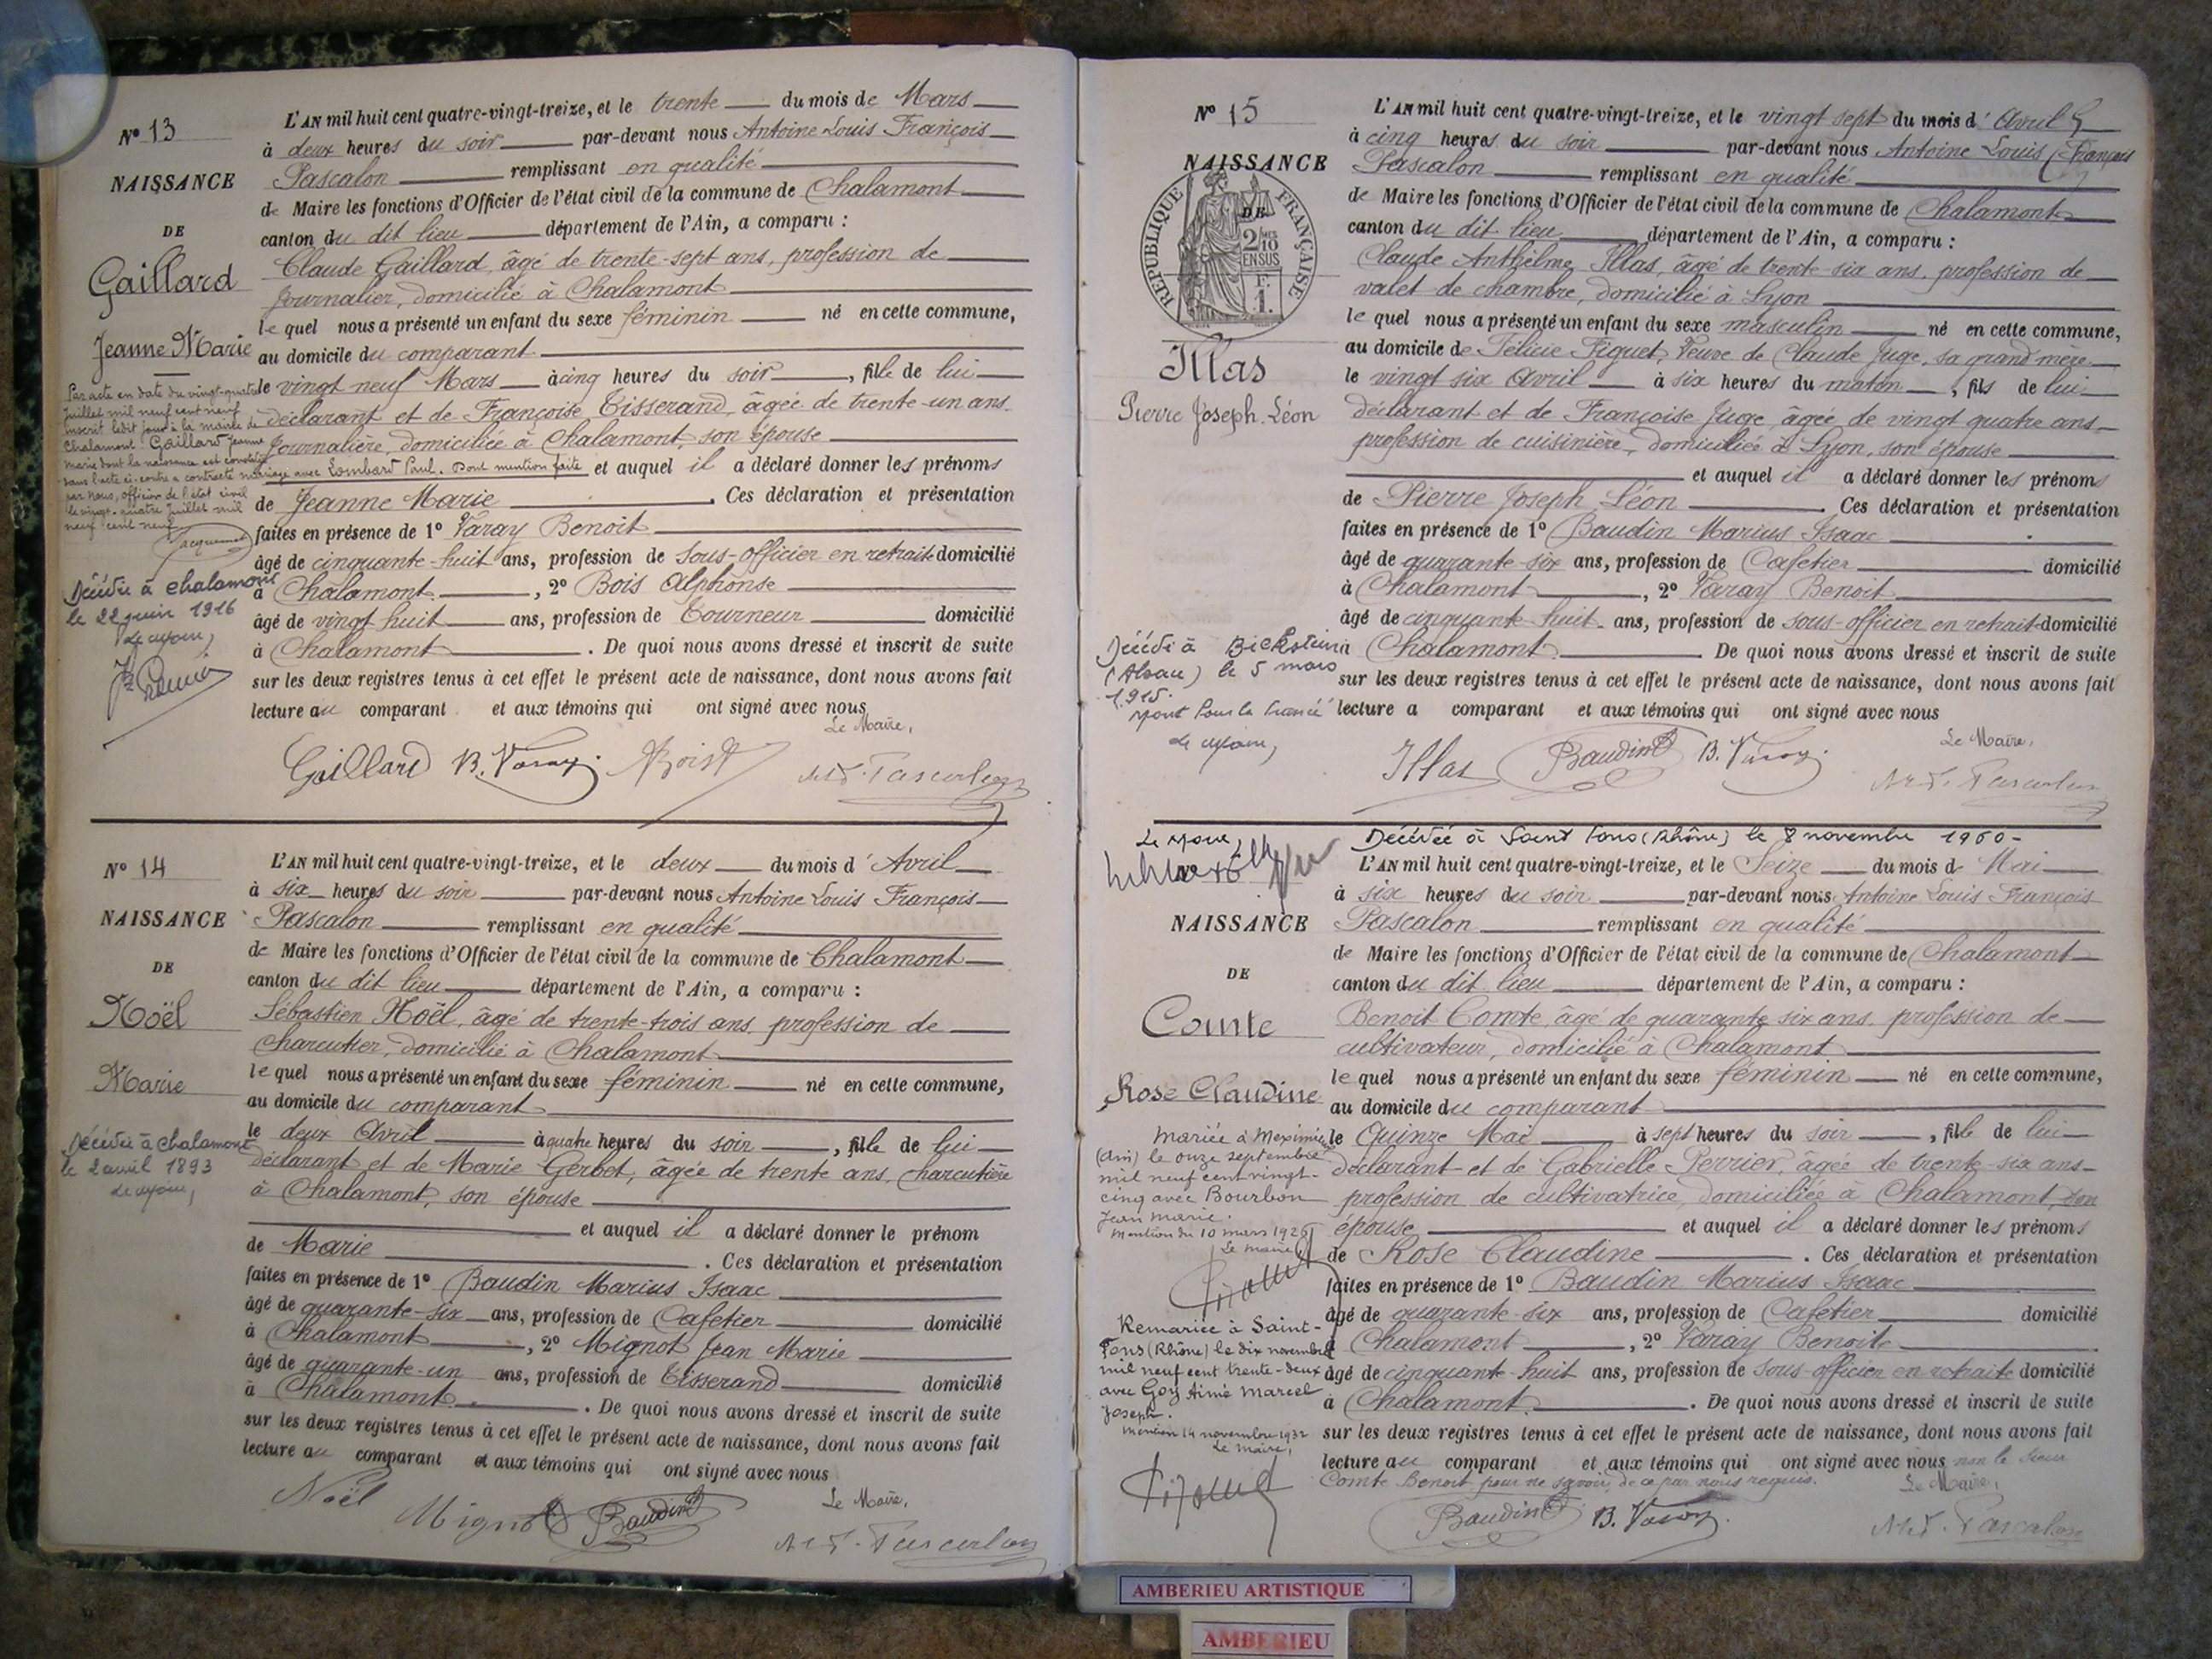 N° 13
NAISSANCE
DE
Gaillard
Jeanne Marie
Par acte en date du vingt-quatre
Juillet mil neuf cent neuf
inscrit ledit jour à la mairie de
Chalamont Gaillard Jeanne
Marie dont la naissance est constatée
dans l'acte ci-contre a contracté mariage avec Lombard Paul. Dont mention faite
par nous, officier de l'état civil
le vingt-quatre Juillet mil
neuf cent neuf
Décédée à Chalamont
le 22 juin 1916
Le Maire,
L'AN mil huit cent quatre-vingt-treize, et le trente du mois de Mars
à deux heures du soir par-devant nous Antoine Louis François
Pascalon remplissant en qualité
de Maire les fonctions d'Officier de l'état civil de la commune de Chalamont
canton du dit lieu département de l'Ain, a comparu :
Claude Gaillard, âgé de trente-sept ans, profession de
journalier, domicilié à Chalamont
le quel nous a présenté un enfant du sexe féminin né en cette commune,
au domicile du comparant
le vingt neuf Mars à cinq heures du soir, fille de lui
déclarant et de Françoise Tisserand, âgée de trente-un ans
Journalière, domiciliée à Chalamont, son épouse
et auquel il a déclaré donner les prénoms
de Jeanne Marie. Ces déclaration et présentation
faites en présence de 1° Varay Benoit
âgé de cinquante-huit ans, profession de sous-officier en retraite domicilié
à Chalamont, 2° Bois Alphonse
âgé de vingt huit ans, profession de Tourneur domicilié
à Chalamont. De quoi nous avons dressé et inscrit de suite
sur les deux registres tenus à cet effet le présent acte de naissance, dont nous avons fait
lecture au comparant et aux témoins qui ont signé avec nous
Le Maire,
Gaillard B. Varay Bois A Pascalon
N° 14
NAISSANCE
DE
Noël
Marie
Décédée à Chalamont
le 2 avril 1893
Le Maire,
L'AN mil huit cent quatre-vingt-treize, et le deux du mois d'Avril
à six heures du soir par-devant nous Antoine Louis François
Pascalon remplissant en qualité
de Maire les fonctions d'Officier de l'état civil de la commune de Chalamont
canton du dit lieu département de l'Ain, a comparu :
Sébastien Noël, âgé de trente-trois ans, profession de
charcutier, domicilié à Chalamont
le quel nous a présenté un enfant du sexe féminin né en cette commune,
au domicile du comparant
le deux Avril à quatre heures du soir, fille de lui
déclarant et de Marie Gerbet, âgée de trente ans, charcutière
à Chalamont, son épouse
et auquel il a déclaré donner le prénom
de Marie. Ces déclaration et présentation
faites en présence de 1° Baudin Marius Isaac
âgé de quarante-six ans, profession de Cafetier domicilié
à Chalamont, 2° Mignot Jean Marie
âgé de quarante-un ans, profession de Tisserand domicilié
à Chalamont. De quoi nous avons dressé et inscrit de suite
sur les deux registres tenus à cet effet le présent acte de naissance, dont nous avons fait
lecture au comparant et aux témoins qui ont signé avec nous
Le Maire,
Noël Mignot Baudin Pascalon
N° 15
NAISSANCE
DE
REPUBLIQUE FRANÇAISE
2/10 MES
EN SUS
1 F.
Illas
Pierre Joseph Léon
Décédé à
(Alsace) le 5 mars
1915.
Mort Pour la France
Le Maire,
L'AN mil huit cent quatre-vingt-treize, et le vingt sept du mois d'Avril
à cinq heures du soir par-devant nous Antoine Louis François
Pascalon remplissant en qualité
de Maire les fonctions d'Officier de l'état civil de la commune de Chalamont
canton du dit lieu département de l'Ain, a comparu :
Claude Anthelme Illas, âgé de trente-six ans, profession de
valet de chambre, domicilié à Lyon
le quel nous a présenté un enfant du sexe masculin né en cette commune,
au domicile de Félicie Figuet Veuve de Claude Juge, sa grand'mère
le vingt six Avril à six heures du matin, fils de lui
déclarant et de Françoise Juge, âgée de vingt quatre ans
profession de cuisinière, domiciliée à Lyon, son épouse
et auquel il a déclaré donner les prénoms
de Pierre Joseph Léon. Ces déclaration et présentation
faites en présence de 1° Baudin Marius Isaac
âgé de quarante-six ans, profession de Cafetier domicilié
à Chalamont, 2° Varay Benoit
âgé de cinquante-huit ans, profession de sous-officier en retraite domicilié
à Chalamont. De quoi nous avons dressé et inscrit de suite
sur les deux registres tenus à cet effet le présent acte de naissance, dont nous avons fait
lecture a comparant et aux témoins qui ont signé avec nous
Le Maire,
Illas Baudin B. Varay Pascalon
Le Maire,
Décédée à Saint Fons (Rhône) le 8 novembre 1960
NAISSANCE
DE
Comte
Rose Claudine
Mariée à Meximieux
(Ain) le onze septembre
mil neuf cent vingt-
cinq avec Bourbon
Jean Marie.
Mention du 10 mars 1926
Le Maire,
Remariée à Saint-
Fons (Rhône) le dix novembre
mil neuf cent trente-deux
avec Goy Aimé Marcel
Joseph.
Mention 14 novembre 1932
Le Maire,
L'AN mil huit cent quatre-vingt-treize, et le Seize du mois de Mai
à six heures du soir par-devant nous Antoine Louis François
Pascalon remplissant en qualité
de Maire les fonctions d'Officier de l'état civil de la commune de Chalamont
canton du dit lieu département de l'Ain, a comparu :
Benoit Comte, âgé de quarante six ans, profession de
cultivateur, domicilié à Chalamont
le quel nous a présenté un enfant du sexe féminin né en cette commune,
au domicile du comparant
le Quinze Mai à sept heures du soir, fille de lui
déclarant et de Gabrielle Perrier, âgée de trente-six ans
profession de cultivatrice, domiciliée à Chalamont, son
épouse et auquel il a déclaré donner les prénoms
de Rose Claudine. Ces déclaration et présentation
faites en présence de 1° Baudin Marius Isaac
âgé de quarante-six ans, profession de Cafetier domicilié
à Chalamont, 2° Varay Benoit
âgé de cinquante-huit ans, profession de sous-officier en retraite domicilié
à Chalamont. De quoi nous avons dressé et inscrit de suite
sur les deux registres tenus à cet effet le présent acte de naissance, dont nous avons fait
lecture au comparant et aux témoins qui ont signé avec nous non le sieur
Comte Benoit pour ne savoir de ce par nous requis.
Le Maire,
Baudin B. Varay Pascalon
AMBERIEU ARTISTIQUE
AMBERIEU